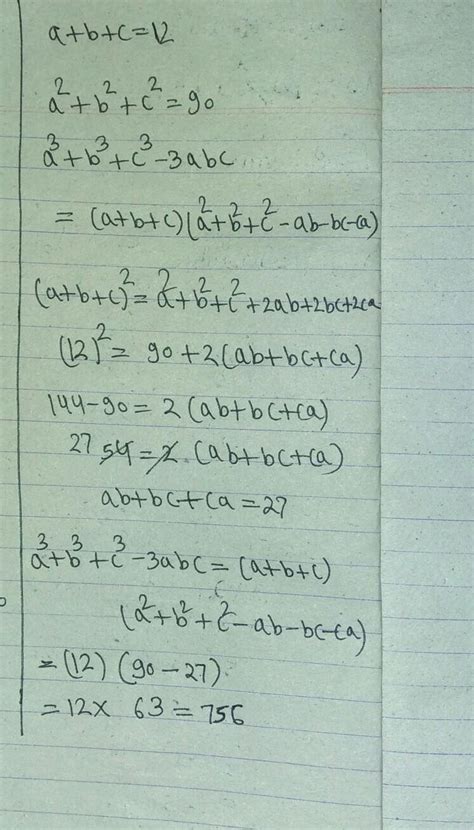 a+b+c=12
a²+b²+c²=90
a³+b³+c³-3abc
= (a+b+c)(a²+b²+c²-ab-bc-ca)
(a+b+c)²=a²+b²+c²+2ab+2bc+2ca
(12)²= 90+2(ab+bc+ca)
144-90=2(ab+bc+ca)
27 54=2 (ab+bc+ca)
ab+bc+ca=27
a³+b³+c³-3abc=(a+b+c)
(a²+b²+c²-ab-bc-ca)
=(12)(90-27)
=12x 63=756